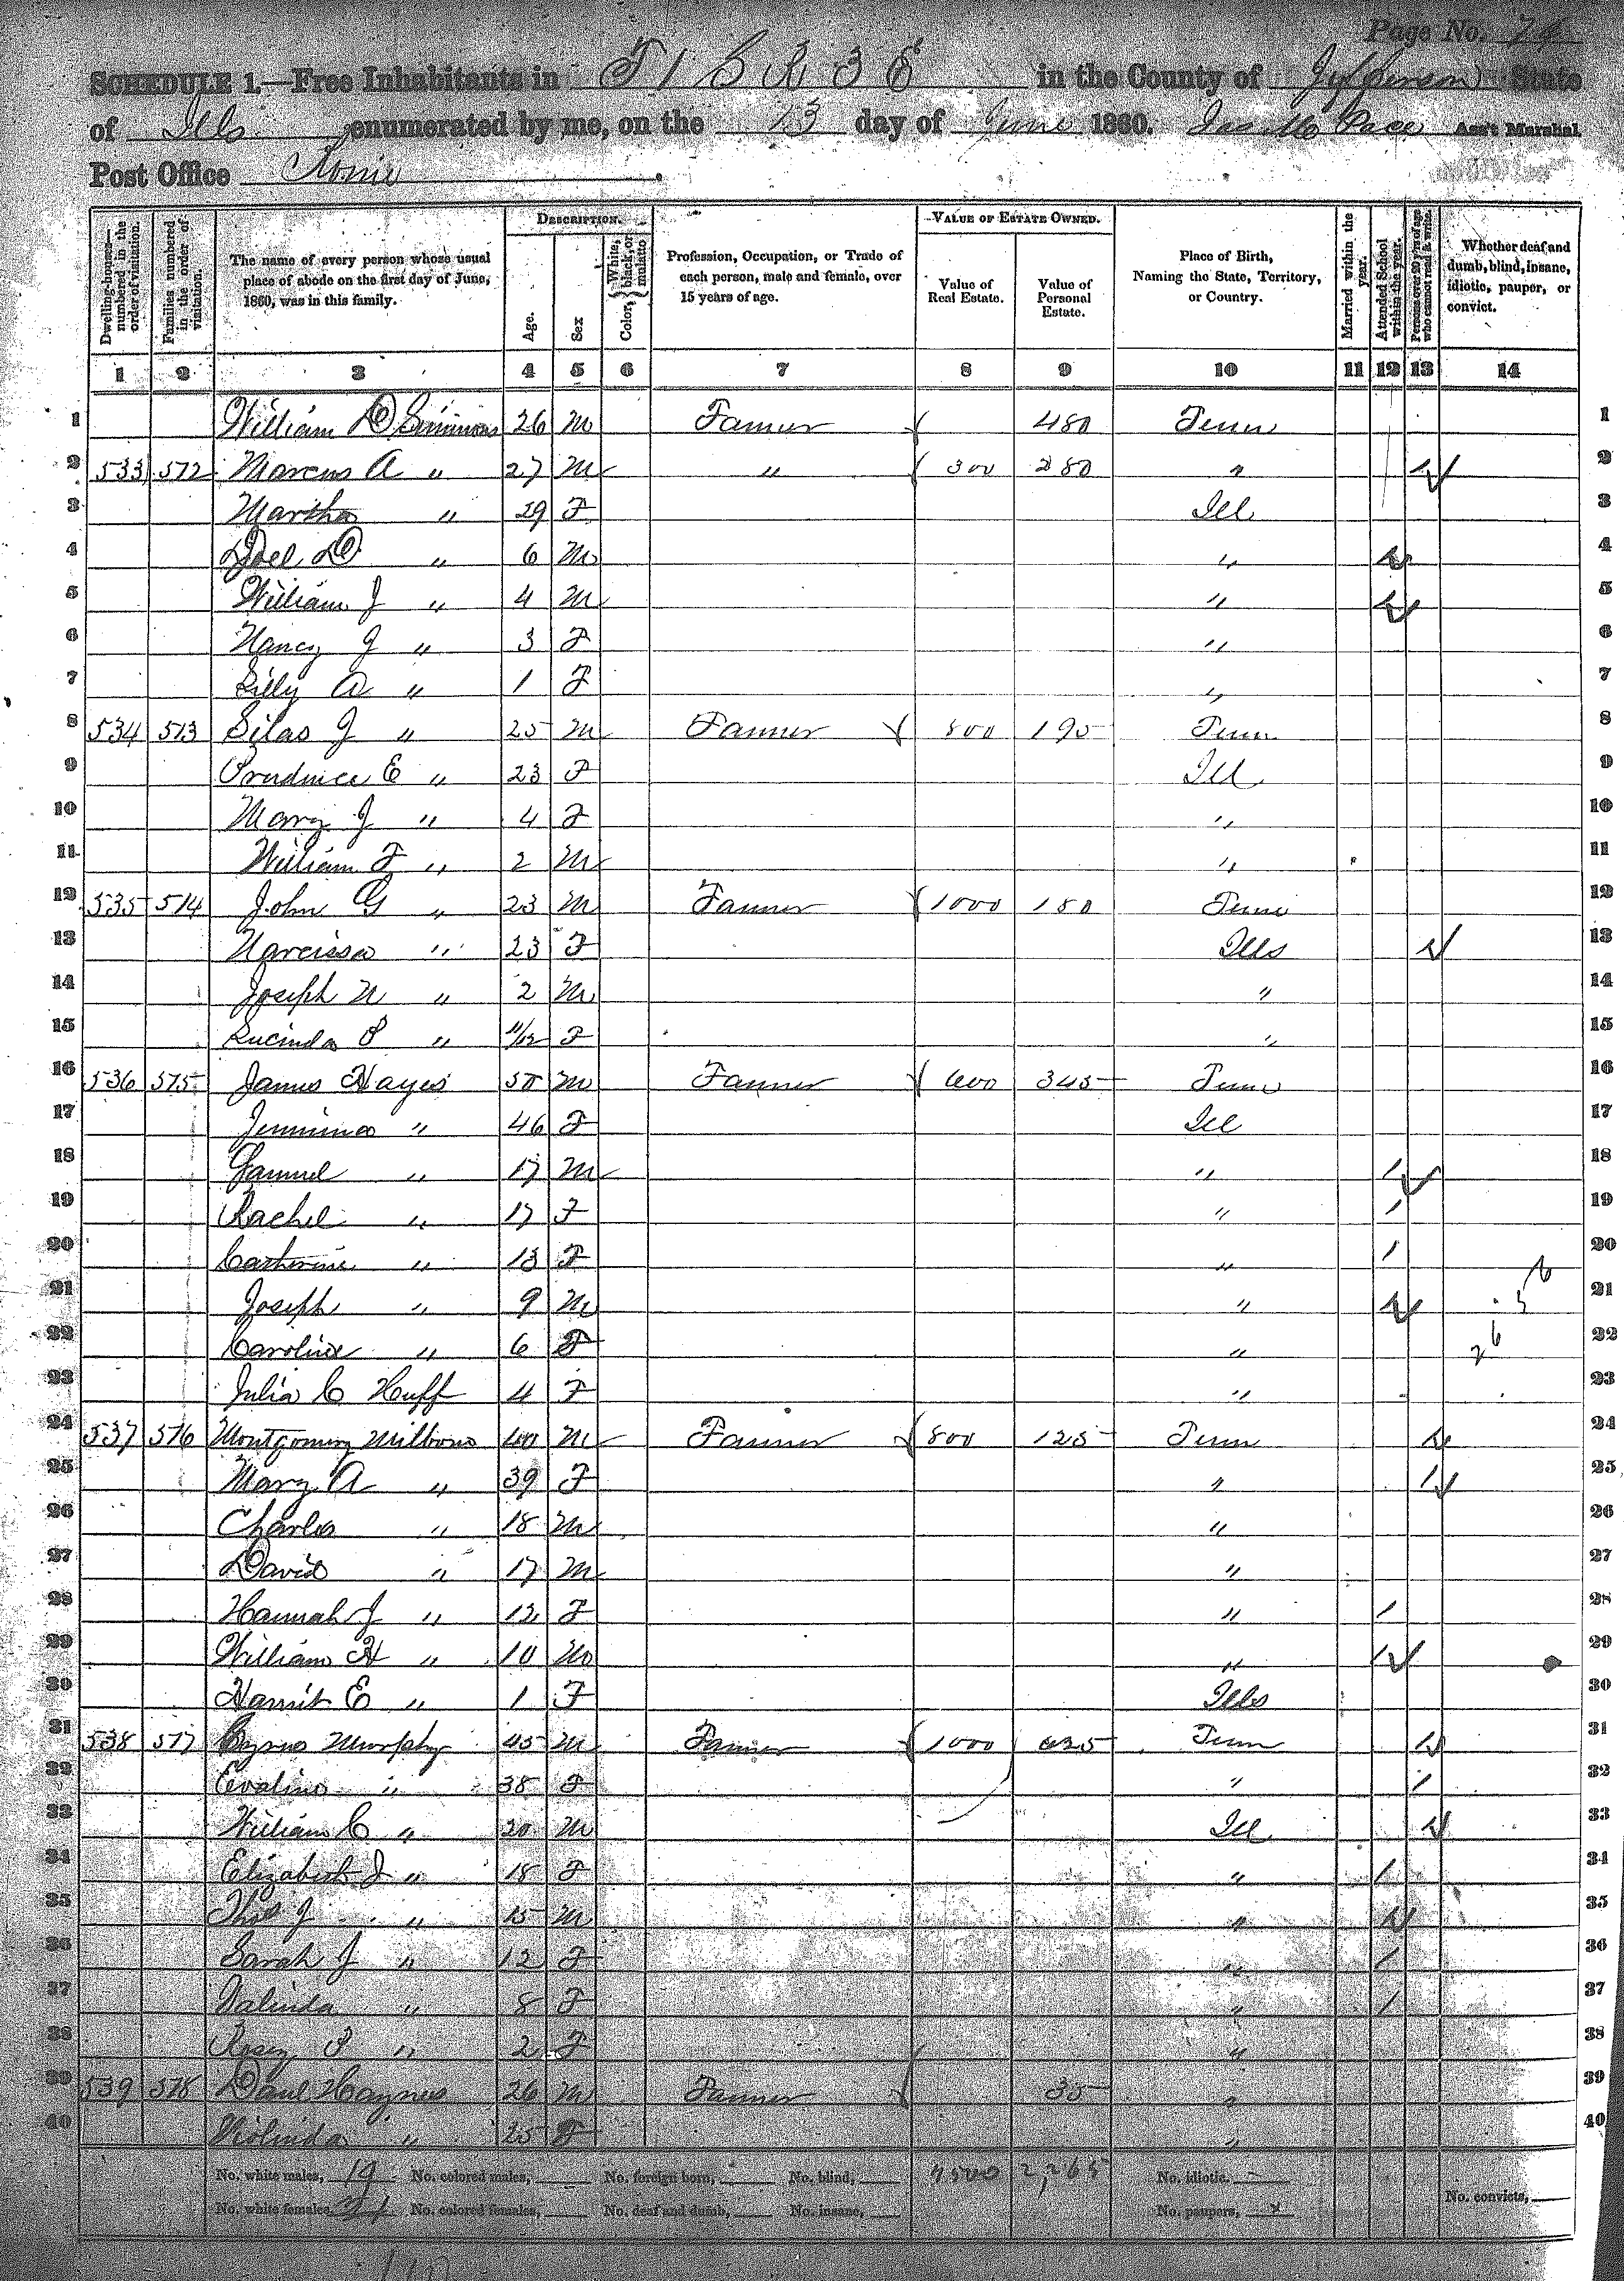 Page No. 74
SCHEDULE 1.—Free Inhabitants in T 1 S R 3 E in the County of Jefferson State
of Ills enumerated by me, on the 13 day of June 1860. Jas M Pace Ass't Marshal.
Post Office Rome
Dwelling-houses—numbered in the order of visitation.
Families numbered in the order of visitation.
The name of every person whose usual place of abode on the first day of June, 1860, was in this family.
DESCRIPTION.
Age.
Sex
Color, { White, black, or mulatto
Profession, Occupation, or Trade of each person, male and female, over 15 years of age.
VALUE OF ESTATE OWNED.
Value of Real Estate.
Value of Personal Estate.
Place of Birth, Naming the State, Territory, or Country.
Married within the year.
Attended School within the year.
Persons over 20 y'rs of age who cannot read & write.
Whether deaf and dumb, blind, insane, idiotic, pauper, or convict.
1 2 3 4 5 6 7 8 9 10 11 12 13 14
1 William D Simmons 26 M Farmer 480 Tenn 1
2 533 572 Marcus A " 27 M " 300 280 " / 2
3 Martha " 29 F Ill 3
4 Joel D " 6 M " / 4
5 William J " 4 M " / 5
6 Nancy J " 3 F " 6
7 Lilly A " 1 F " 7
8 534 573 Silas J " 25 M Farmer 800 195 Tenn 8
9 Prudnice E " 23 F Ill 9
10 Mary J " 4 F " 10
11 William F " 2 M " 11
12 535 574 John G " 23 M Farmer 1000 180 Tenn 12
13 Narcissa " 23 F Ills / 13
14 Joseph N " 2 M " 14
15 Lucinda P " 11/12 F " 15
16 536 575 James Hayes 50 M Farmer 600 345 Tenn 16
17 Jemima " 46 F Ill 17
18 Samuel " 17 M " / 18
19 Rachel " 17 F " / 19
20 Catherine " 13 F " / 20
21 Joseph " 9 M " / 21
22 Caroline " 6 F " 22
23 Julia C Huff 4 F " 23
24 537 576 Montgomery Milborn 40 M Farmer 800 125 Tenn / 24
25 Mary A " 39 F " / 25
26 Charles " 18 M " 26
27 David " 17 M " 27
28 Hannah J " 12 F " / 28
29 William H " 10 M " / 29
30 Harriit E " 1 F Ills 30
31 538 577 Cyrus Murphy 45 M Farmer 1000 625 Tenn / 31
32 Evaline " 38 F " / 32
33 William C " 20 M Ill / 33
34 Elizabeth J " 18 F " / 34
35 Thos J " 15 M " / 35
36 Sarah J " 12 F " / 36
37 Malinda " 8 F " / 37
38 Rosey P " 2 F " 38
39 539 578 Danl Haynes 26 M Farmer 35 " 39
40 Violinda " 25 F " 40
No. white males, 19 No. colored males, No. foreign born, No. blind, 4500 2,265 No. idiotic,
No. white females, 21 No. colored females, No. deaf and dumb, No. insane, No. paupers, No. convicts,